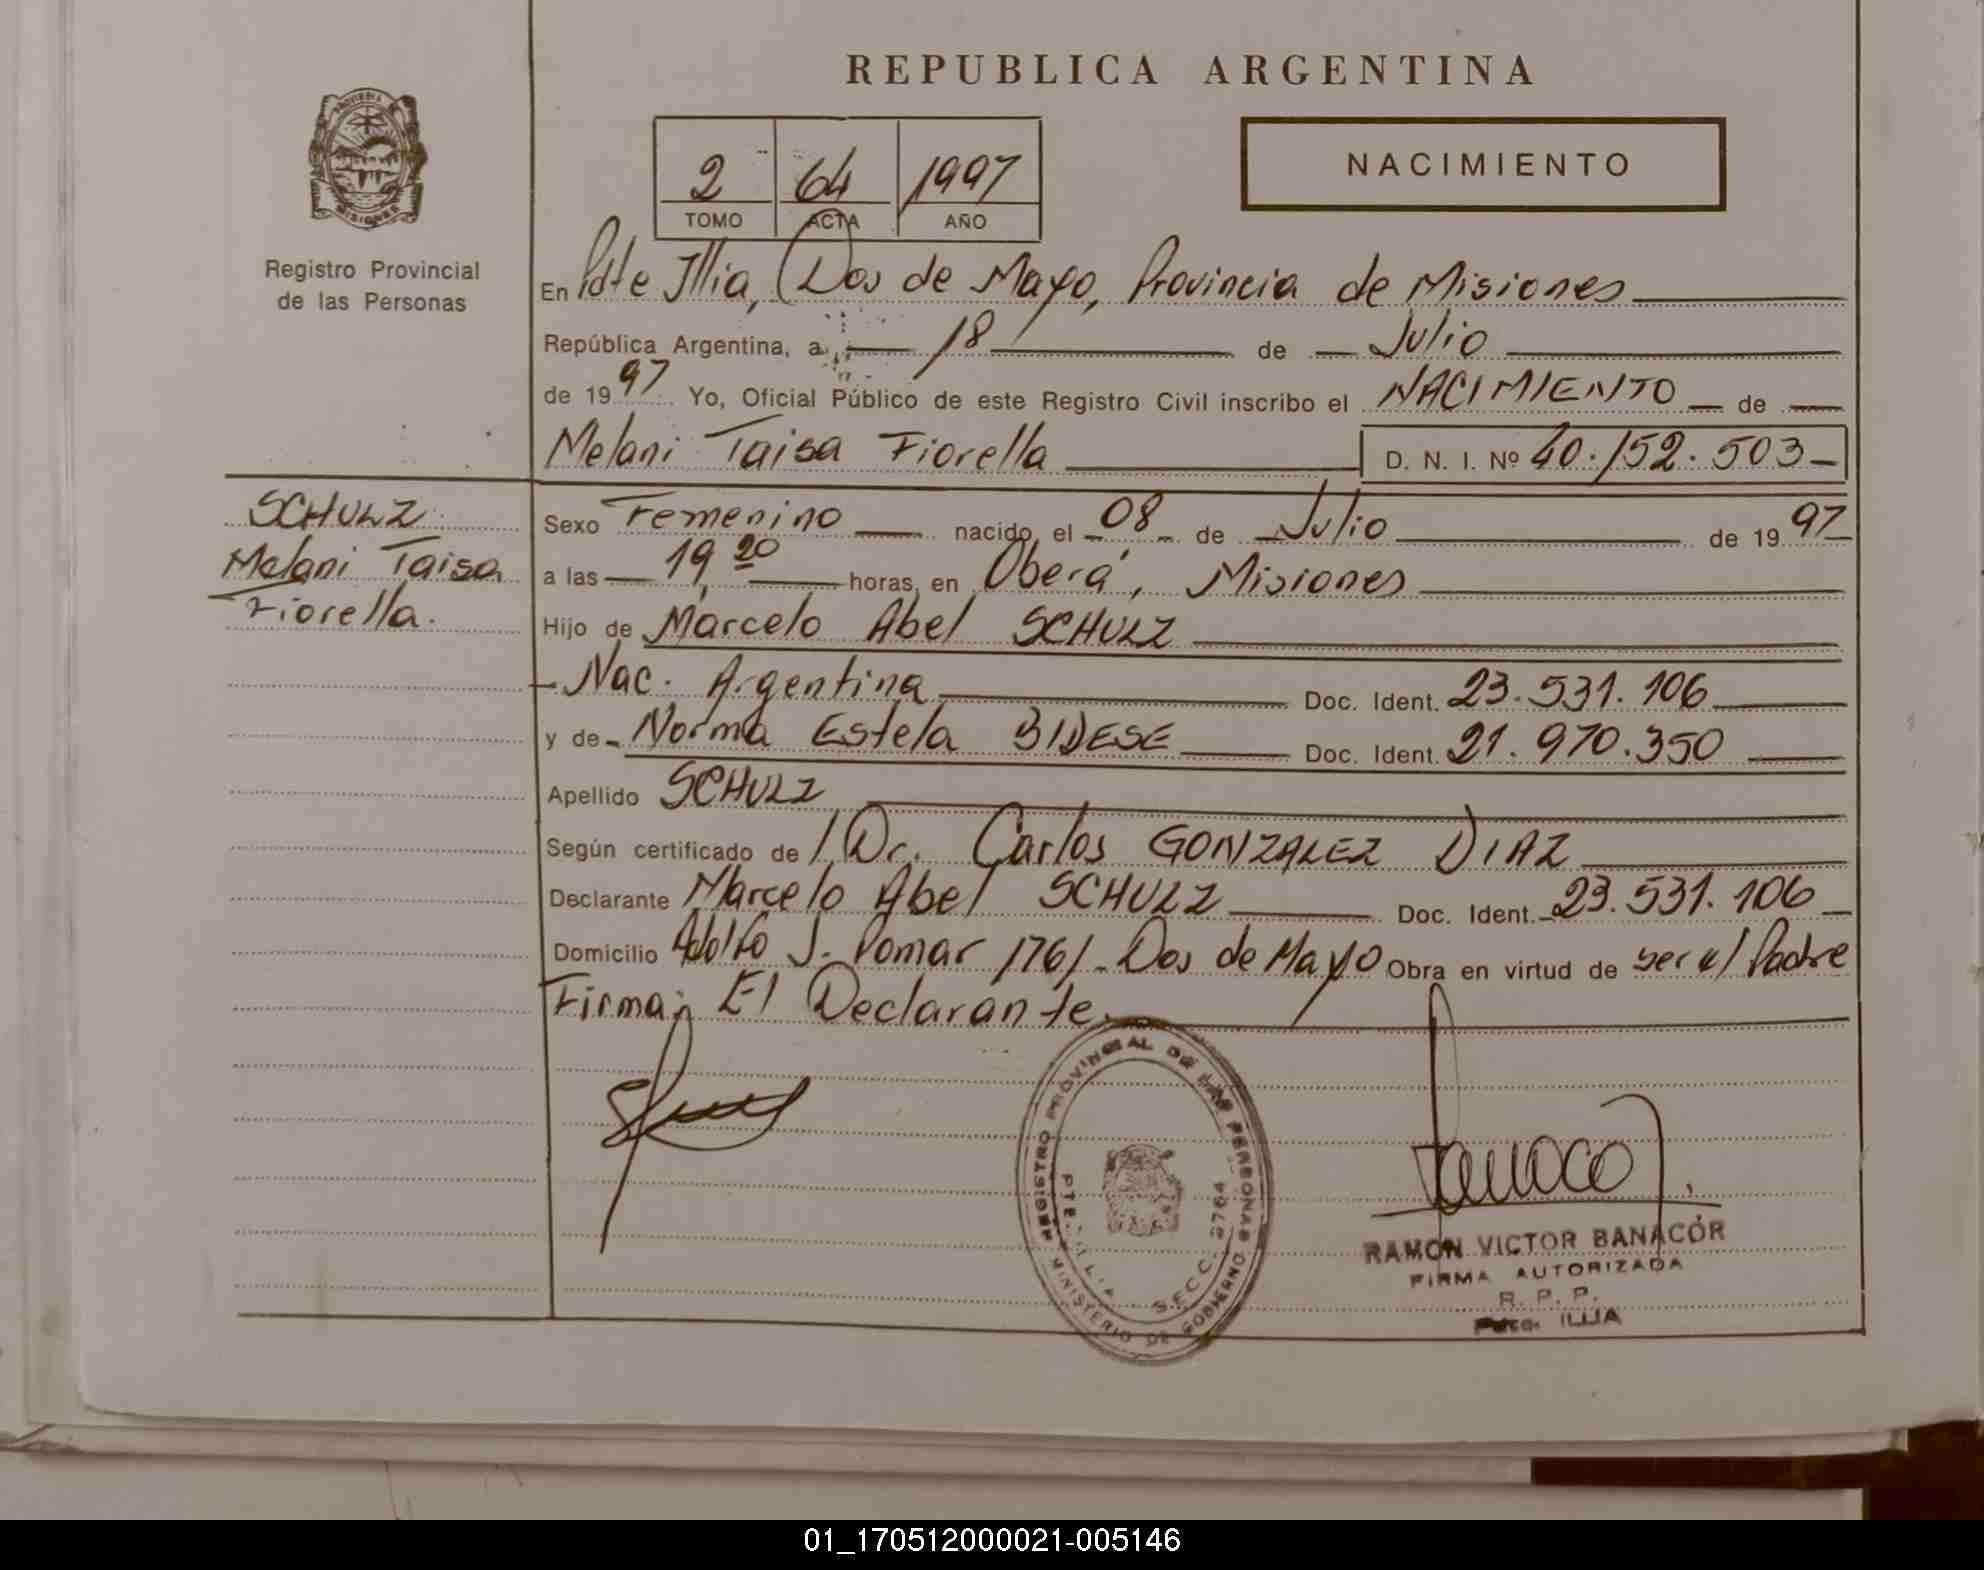 REPUBLICA ARGENTINA
NACIMIENTO
2 64 1997
TOMO ACTA AÑO
PROVINCIA DE
MISIONES
Registro Provincial
de las Personas
En Pdte Illia, Dos de Mayo, Provincia de Misiones
República Argentina, a 18 de Julio
de 1997 Yo, Oficial Público de este Registro Civil inscribo el NACIMIENTO de
Melani Taisa Fiorella D. N. I. Nº 40.152.503
SCHULZ
Melani Taisa
Fiorella.
Sexo Femenino nacido el 08 de Julio de 1997
a las 19,20 horas, en Oberá, Misiones
Hijo de Marcelo Abel SCHULZ
Nac. Argentina Doc. Ident. 23.531.106
y de Norma Estela BIDESE Doc. Ident. 21.970.350
Apellido SCHULZ
Según certificado de Dr. Carlos GONZALEZ DIAZ
Declarante Marcelo Abel SCHULZ Doc. Ident. 23.531.106
Domicilio Adolfo J. Pomar 1761 - Dos de Mayo Obra en virtud de ser el Padre
Firma: El Declarante.
REGISTRO PROVINCIAL DE LAS PERSONAS
MINISTERIO DE GOBIERNO
PTE. ILLIA
SECC. 2764
RAMON VICTOR BANACOR
FIRMA AUTORIZADA
R. P. P.
Pdte. ILLIA
01_170512000021-005146